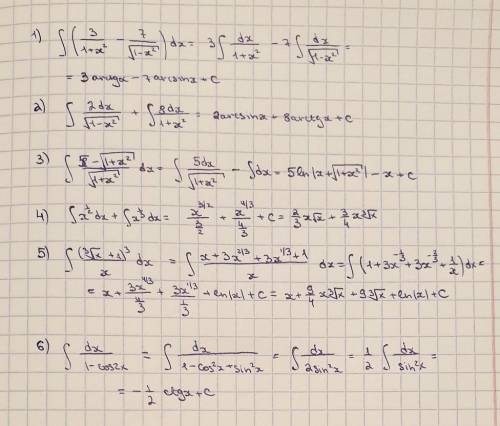 1) ∫(3/(1+x²) − 7/√(1−x²))dx = 3∫dx/(1+x²) − 7∫dx/√(1−x²) =
= 3arctgx − 7arcsinx + C
2) ∫2dx/√(1−x²) + ∫8dx/(1+x²) = 2arcsinx + 8arctgx + C
3) ∫(5−√(1+x²))/√(1+x²) dx = ∫5dx/√(1+x²) − ∫dx = 5ln|x+√(1+x²)| − x + C
4) ∫x^(1/2)dx + ∫x^(1/3)dx = x^(3/2)/(3/2) + x^(4/3)/(4/3) + C = 2/3 x√x + 3/4 x∛x
5) ∫(∛x+1)³/x dx = ∫(x+3x^(2/3)+3x^(1/3)+1)/x dx = ∫(1+3x^(-1/3)+3x^(-2/3)+1/x)dx =
= x + 3x^(4/3)/(4/3) + 3x^(1/3)/(1/3) + ln|x| + C = x + 9/4 x∛x + 9∛x + ln|x| + C
6) ∫dx/(1−cos2x) = ∫dx/(1−cos²x+sin²x) = ∫dx/(2sin²x) = 1/2 ∫dx/sin²x =
= −1/2 ctgx + C